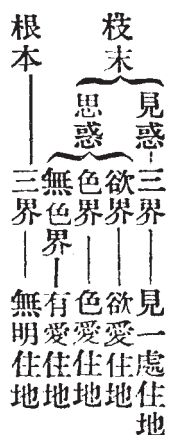 枝末
見惑 三界 見一處住地
思惑
欲界 欲愛住地
色界 色愛住地
無色界 有愛住地
根本 三界 無明住地